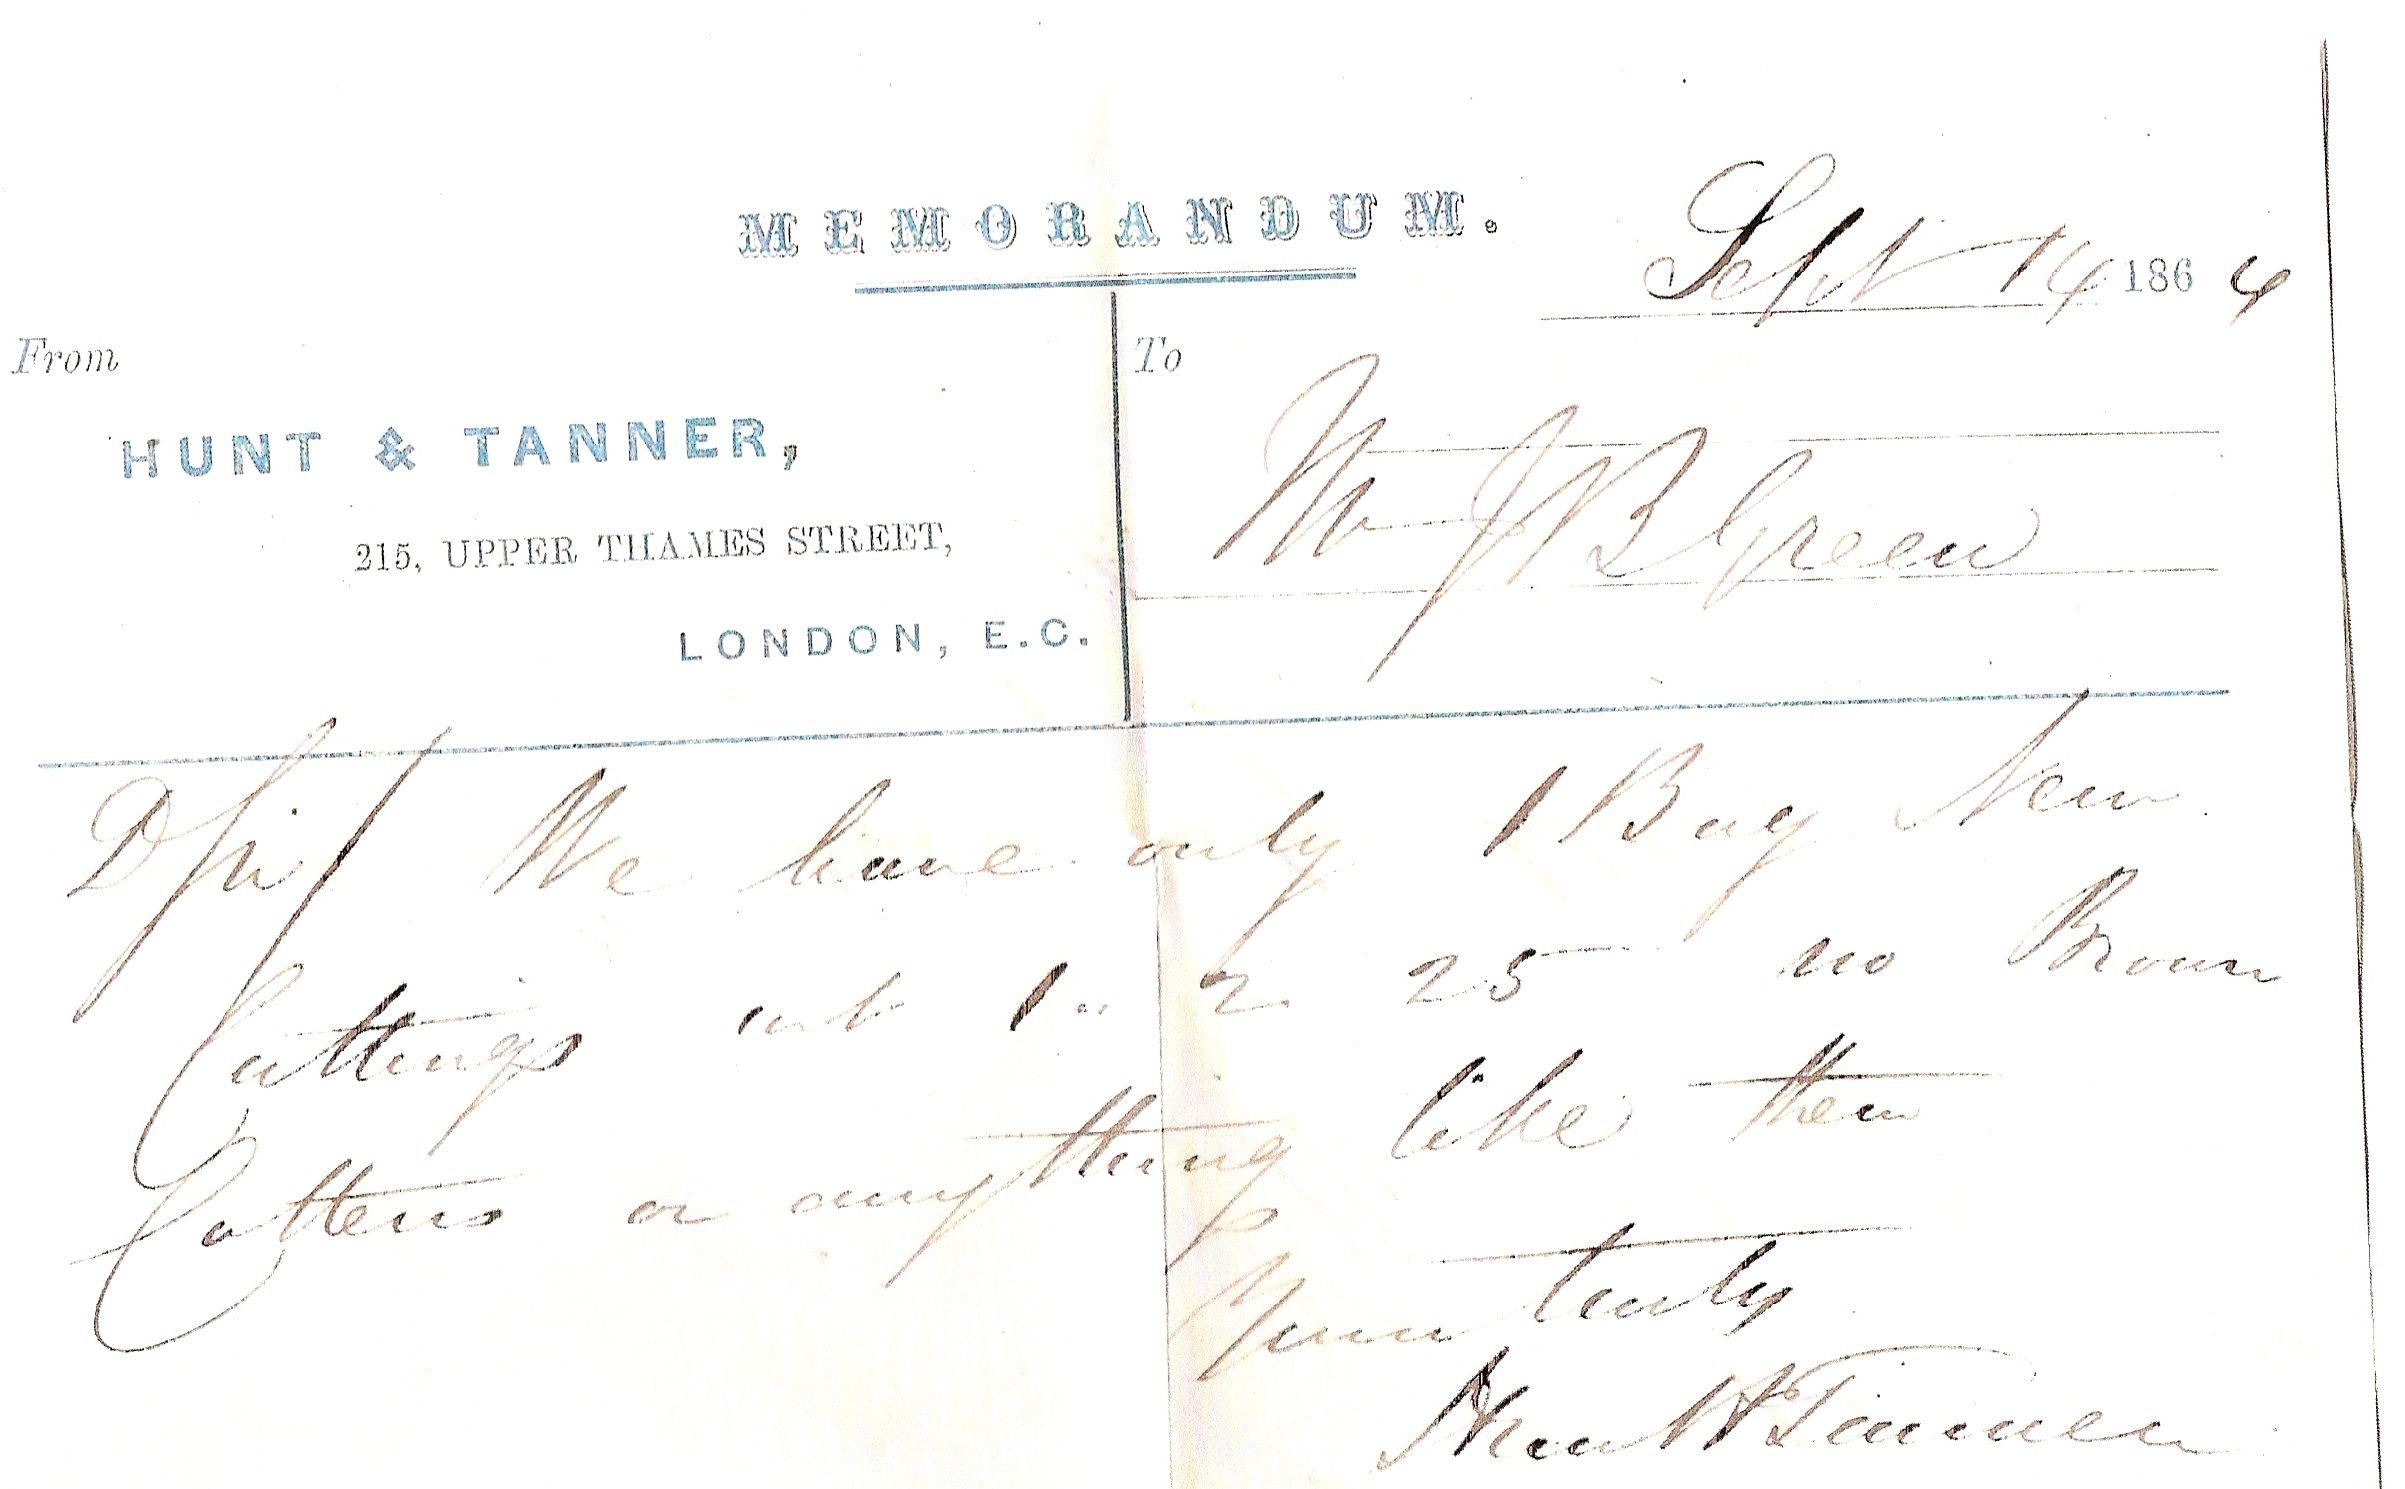 MEMORANDUM.
Sept 14 1864
From
To
HUNT & TANNER,
215, UPPER THAMES STREET,
LONDON, E.C.
Mr J B Green
D Sir / We have only 1 Bag New
Cuttings wt 1 " 2 25 no Brown
Cottens or any thing like them
Yours truly
Hunt & Tanner